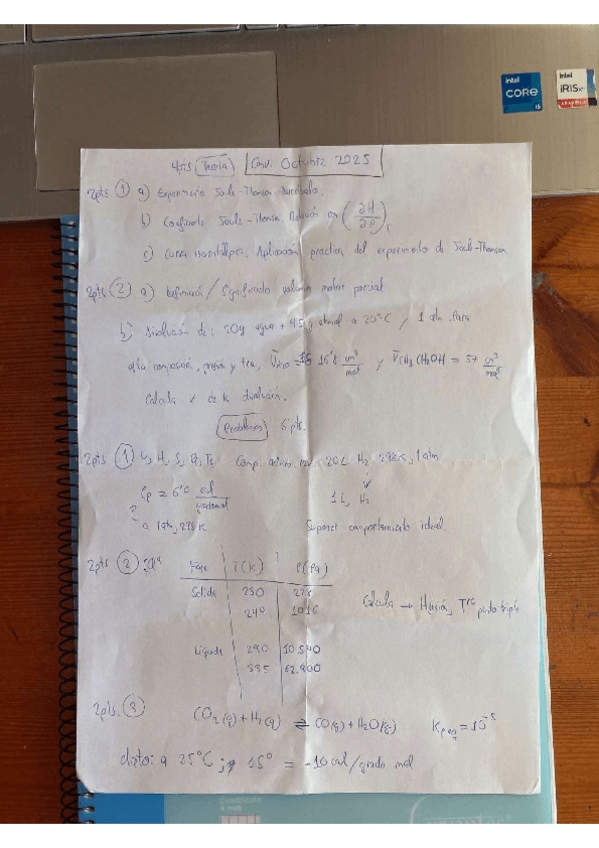 intel CORE i5
intel iRIS Xe GRAPHICS
4pts Teoría Conv. Octubre 2025
2pts ① a) Experimento Joule-Thomson.
b) Coeficiente Joule-Thomson. Relación con (∂H/∂P)
c) Curva isoentálpica. Aplicación practica del experimento de Joule-Thomson
2pts ② a) Definición / Significado volumen molar parcial
b) Disolución de: 50g agua + 45g etanol a 20°C y 1 atm. Para
esta composición, presión y tra, cm³/mol y V̄CH3CH2OH = 57 cm³/mol
Calcula V de la disolución.
Problemas 6 pts.
2pts ① 20L H2 298K, 1 atm
Cp = cal
1L, H2
a 1 atm, 298 K Suponer comportamiento ideal.
2pts ②
Fase T(K) P(Pa)
Sólido 230
240 1016
Calcula → Tra punto triple
Líquido 290 10540
335 62.900
2pts. ③ CO2(g) + H2(g) ⇌ CO(g) + H2O(g) Kp eq = 10⁻⁵
dato: a 25°C ; = -10 cal/grado mol